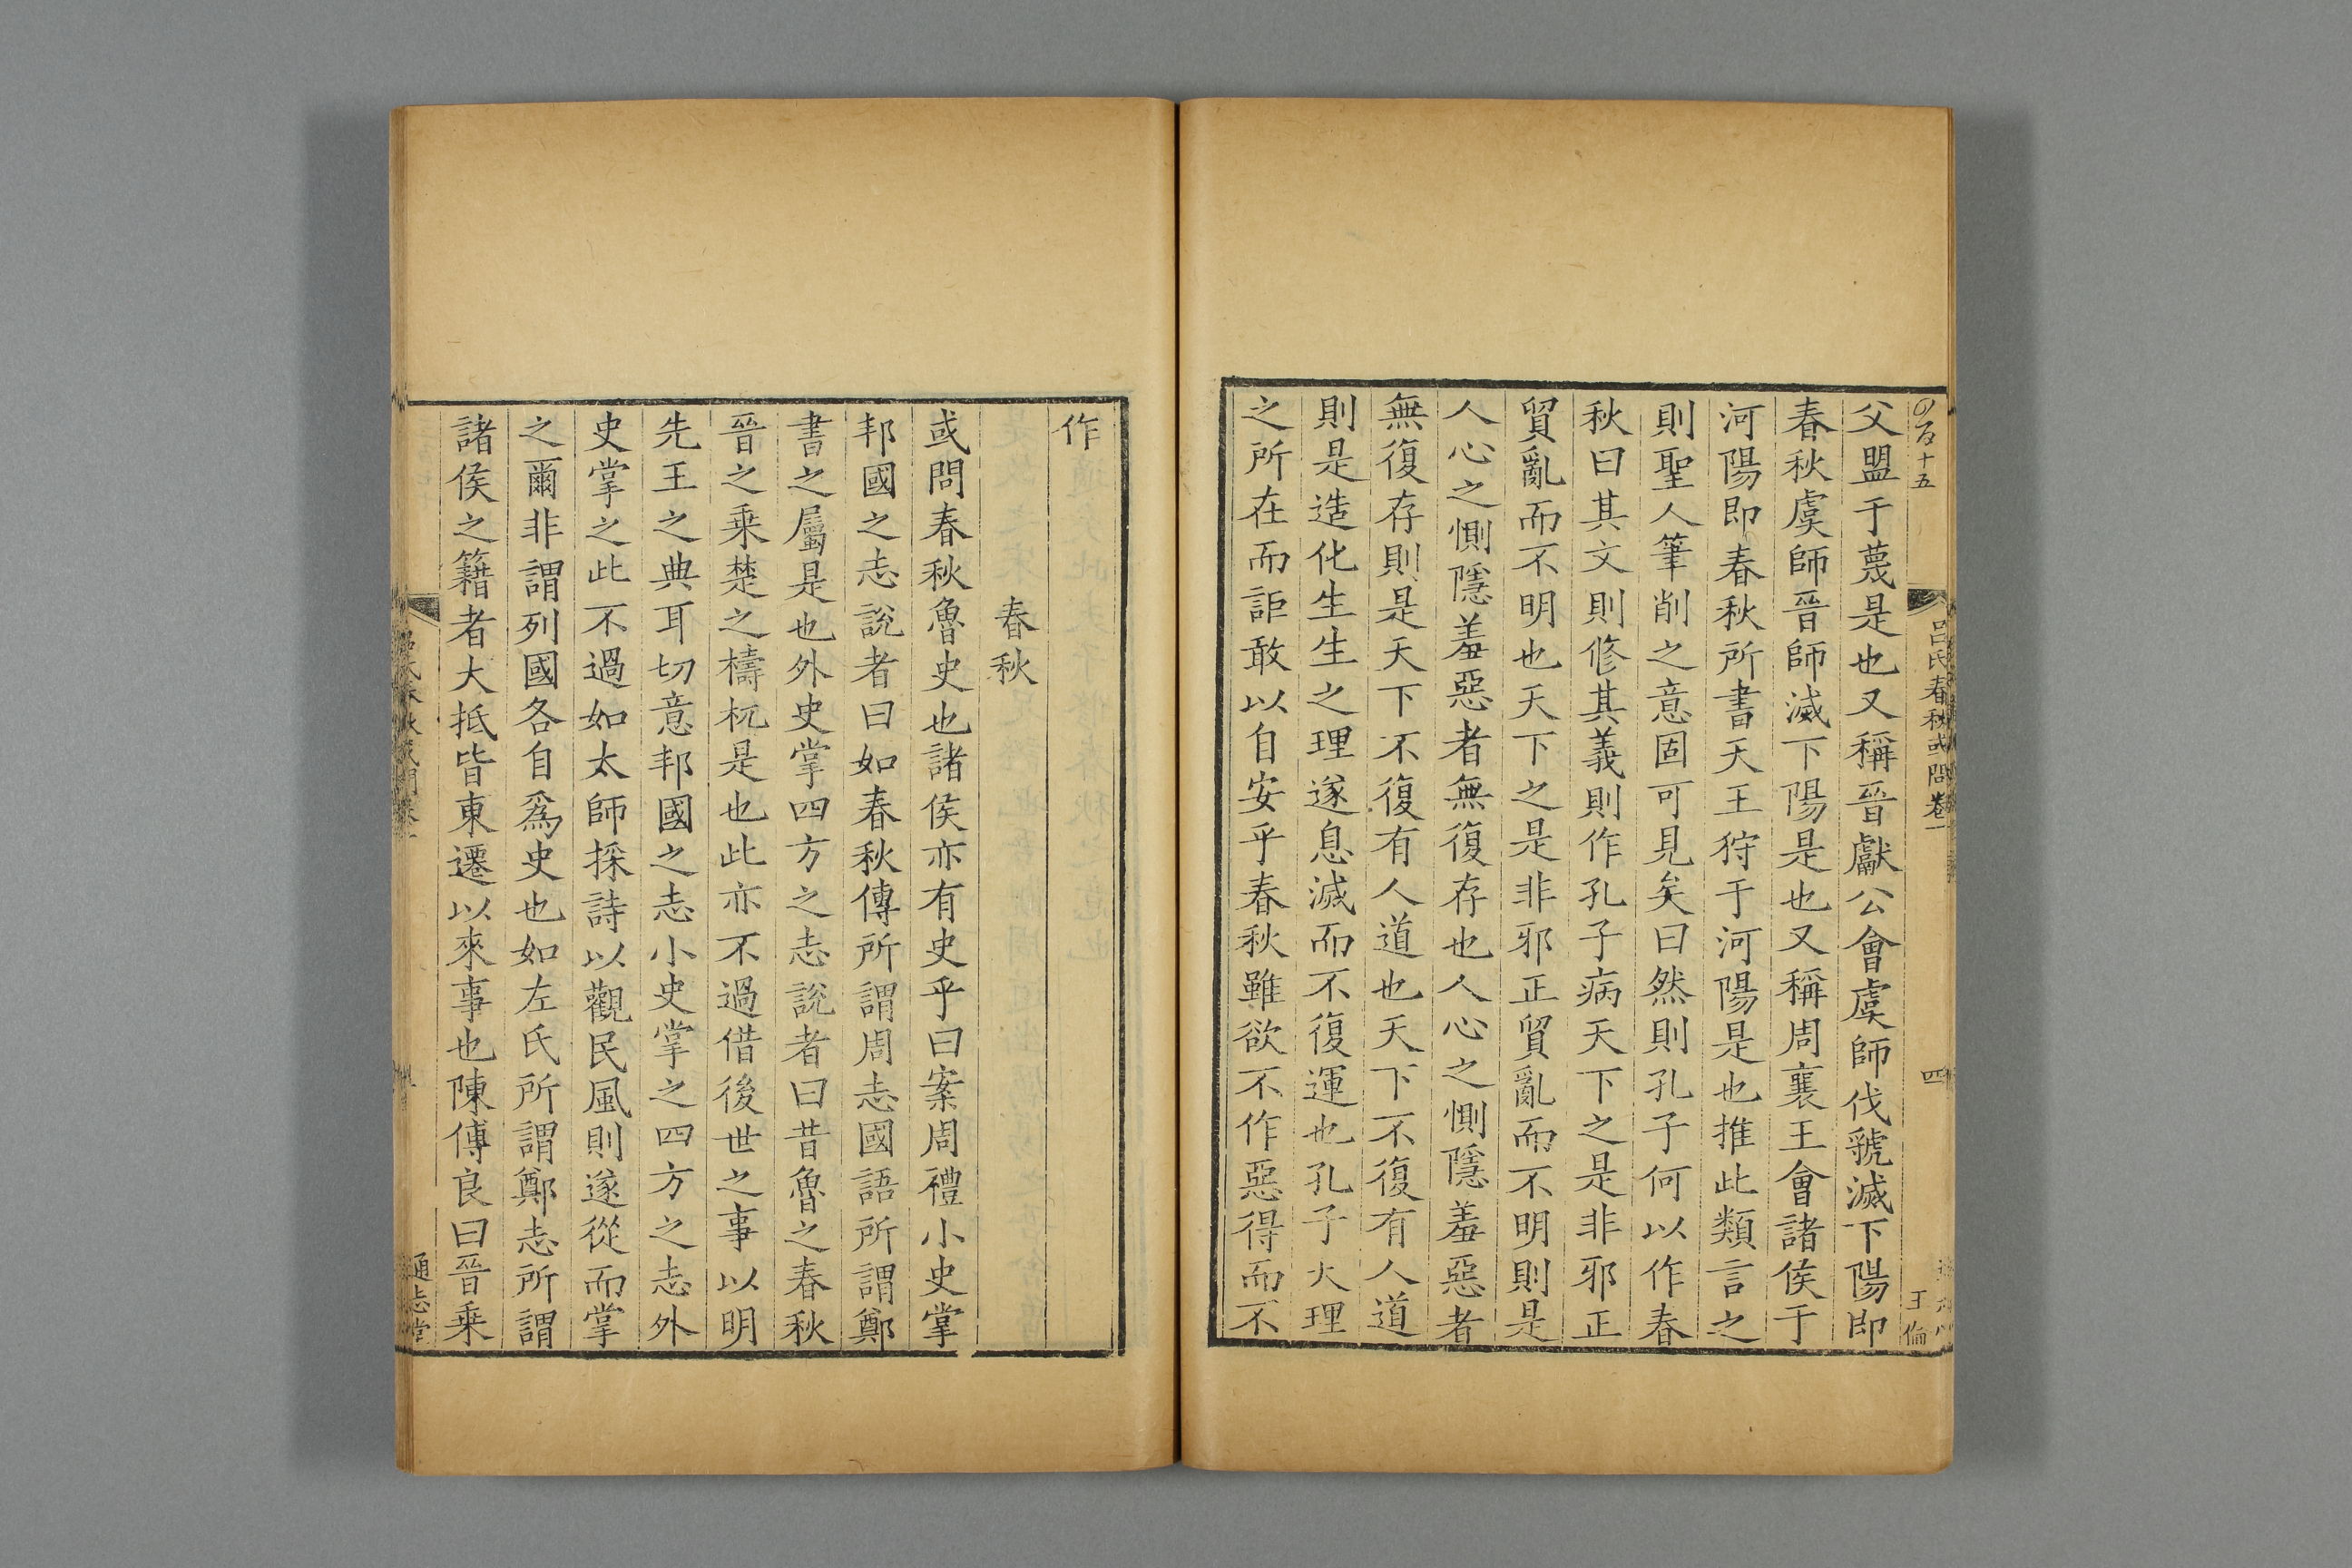 吕氏春秋或問卷一
四
王倫
父盟于蔑是也又稱晉獻公會虞師伐虢滅下陽即
春秋虞師晉師滅下陽是也又稱周襄王會諸侯于
河陽即春秋所書天王狩于河陽是也推此類言之
則聖人筆削之意固可見矣曰然則孔子何以作春
秋曰其文則修其義則作孔子病天下之是非邪正
貿亂而不明也天下之是非邪正貿亂而不明則是
人心之惻隱羞惡者無復存也人心之惻隱羞惡者
無復存則是天下不復有人道也天下不復有人道
則是造化生生之理遂息滅而不復運也孔子大理
之所在而詎敢以自安乎春秋雖欲不作惡得而不
作
春秋
或問春秋魯史也諸侯亦有史乎曰案周禮小史掌
邦國之志說者曰如春秋傳所謂周志國語所謂鄭
書之屬是也外史掌四方之志說者曰昔魯之春秋
晉之乗楚之檮杌是也此亦不過借後世之事以明
先王之典耳切意邦國之志小史掌之四方之志外
史掌之此不過如太師採詩以觀民風則遂從而掌
之爾非謂列國各自爲史也如左氏所謂鄭志所謂
諸侯之籍者大抵皆東遷以來事也陳傅良曰晉乗
通志堂